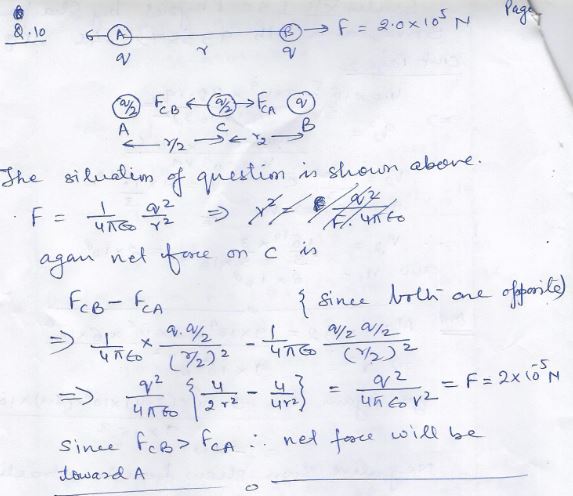 Page
Q.10
A B → F = 2.0×10⁵ N
q r q
q/2 F_CB ← q/2 → F_CA q
A C B
← r/2 → ← r/2 →
The situation of question is shown above.
F = 1/4π∈₀ q²/r² ⇒
agan net force on C is
F_CB − F_CA { since both are opposite}
⇒ 1/4π∈₀ × q.q/2/(r/2)² − 1/4π∈₀ q/2 q/2/(r/2)²
⇒ q²/4π∈₀ {4/2r² − 4/4r²} = q²/4π∈₀r² = F = 2×10⁻⁵N
Since F_CB > F_CA ∴ net force will be
toward A